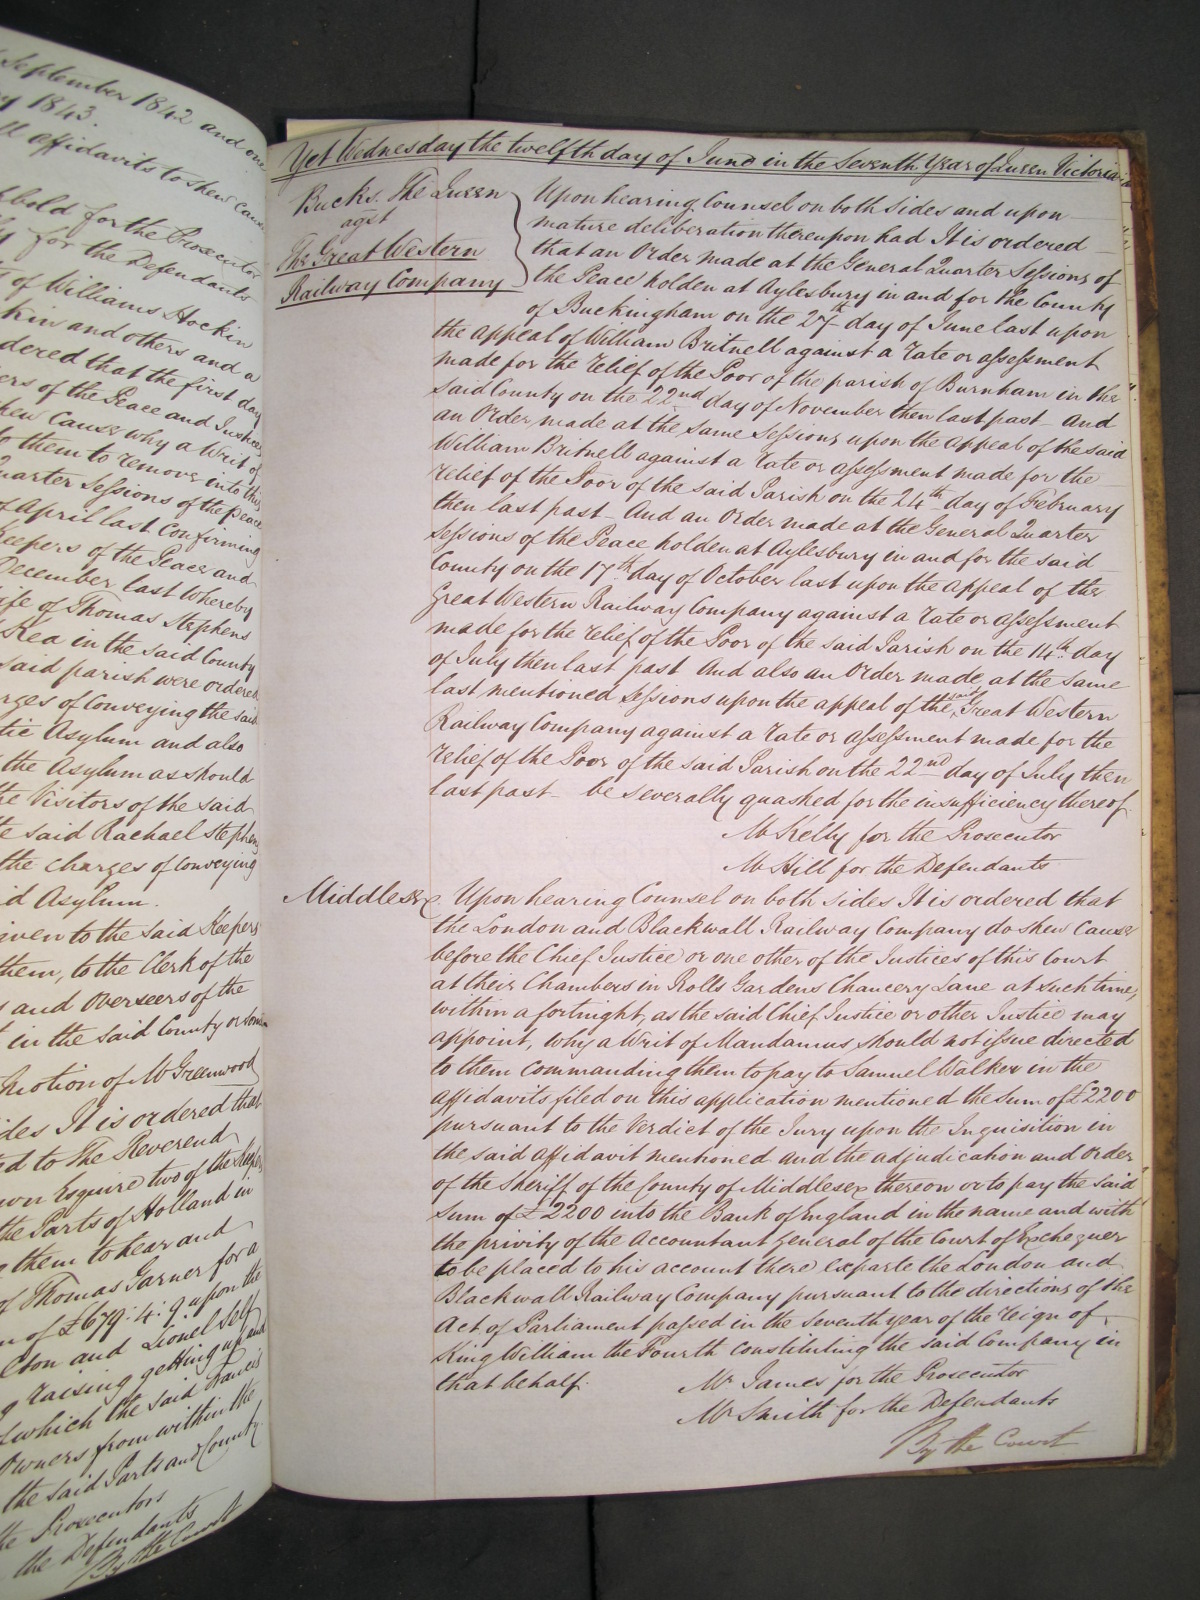 September 1842 and one
1843.
affidavits to shew cause
for the Prosecutor
for the Defendants
of Williams Hockin
kin and others and a
dered that the first day
ers of the Peace and Justices
shew cause why a Writ of
to them to remove into this
Quarter Sessions of the peace
of April last Confirming
Keepers of the Peace and
December last whereby
ife of Thomas Stephens
Kea in the said County
said parish were ordered
rges of Conveying the said
tic Asylum and also
the Asylum as should
he Visitors of the said
te said Rachael Stephens
the charges of Conveying
id Asylum.
iven to the said Keepers
them, to the Clerk of the
s and Overseers of the
t in the said County or some
Motion of Mr Greenwood
ides It is ordered that
ed to The Reverend
own Esquire two of the Keepers
the Parts of Holland in
g them to hear and
of Thomas Garner for a
m of £679:4:9 upon the
Cton and Lionel Self
g raising getting up and
of which the said Francis
Owners from within the
the said Parts and County
the Prosecutors
the Defendants
By the Court
Yet Wednesday the twelfth day of June in the Seventh Year of Queen Victoria
Bucks. The Queen
agst
The Great Western
Railway Company
Upon hearing Counsel on both sides and upon
mature deliberation thereupon had It is ordered
that an Order made at the General Quarter Sessions of
the Peace holden at Aylesbury in and for the County
of Buckingham on the 27th day of June last upon
the appeal of William Britnell against a rate or assessment
made for the relief of the Poor of the parish of Burnham in the
said County on the 22nd day of November then last past – And
an Order made at the same Sessions upon the appeal of the said
William Britnell against a rate or assessment made for the
relief of the Poor of the said Parish on the 24th day of February
then last past – And an Order made at the General Quarter
Sessions of the Peace holden at Aylesbury in and for the said
County on the 17th day of October last upon the appeal of the
Great Western Railway Company against a rate or assessment
made for the relief of the Poor of the said Parish on the 14th day
of July then last past And also an Order made at the same
last mentioned Sessions upon the appeal of the said Great Western
Railway Company against a rate or assessment made for the
relief of the Poor of the said Parish on the 22nd day of July then
last past – be severally quashed for the insufficiency thereof.
Mr Kelly for the Prosecutor
Mr Hill for the Defendants
Middlesex Upon hearing Counsel on both sides It is ordered that
the London and Blackwall Railway Company do shew cause
before the Chief Justice or one other of the Justices of this Court
at their Chambers in Rolls Gardens Chancery Lane at such time,
within a fortnight, as the said Chief Justice or other Justice may
appoint, why a Writ of Mandamus should not issue directed
to them commanding them to pay to Samuel Walker in the
affidavits filed on this application mentioned the sum of £2200
pursuant to the Verdict of the Jury upon the Inquisition in
the said affidavit mentioned and the adjudication and order
of the Sheriff of the County of Middlesex thereon or to pay the said
sum of £2200 into the Bank of England in the name and with
the privity of the Accountant General of the Court of Exchequer
to be placed to his account there exparte the London and
Blackwall Railway Company pursuant to the directions of the
Act of Parliament passed in the seventh year of the reign of
King William the Fourth constituting the said Company in
that behalf. Mr James for the Prosecutor
Mr Smith for the Defendants
By the Court